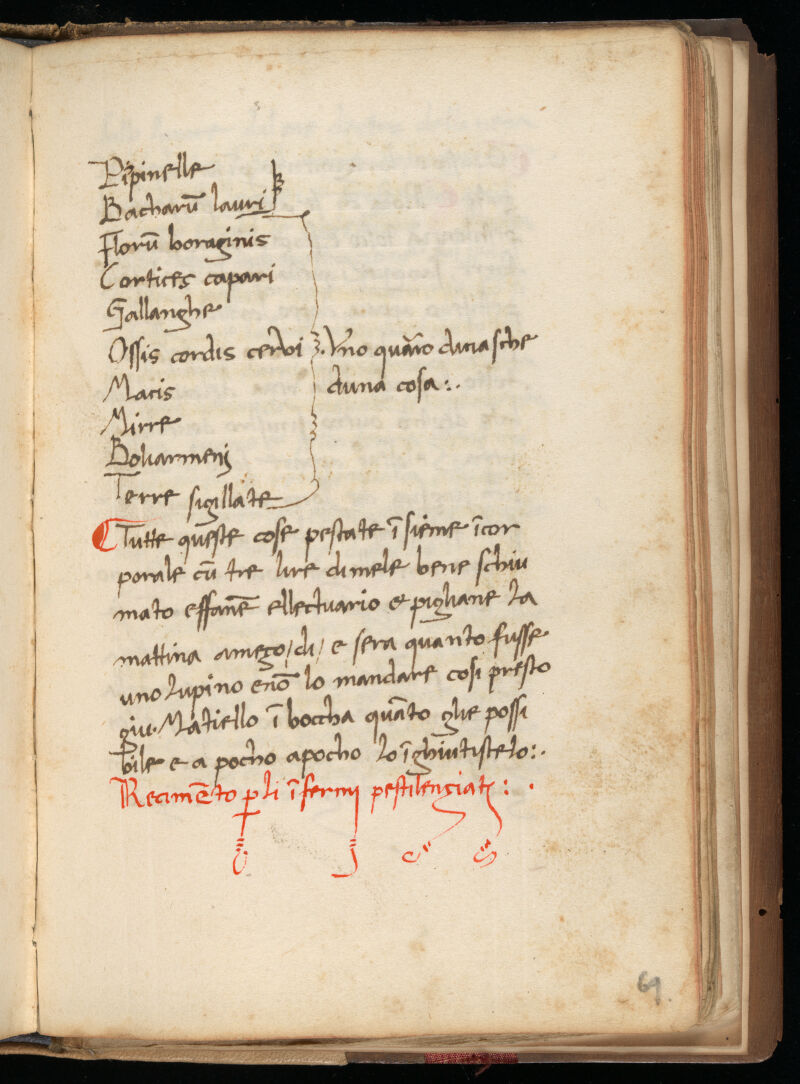 Pīpinelle
Bacharū lauri
Florū boraginis
Cortices capari
Gallanghe
Ossis cordis cervi
Macis
Mirre
Boliarmeni
Terre sigillate
Vno quār̄o diciasche
duna cosa:.
Tutte queste cose pestate ī sieme īcor
porale cū tre lire dimele bene schiu
mato effanē ellectuario e pigliane la
mattina amego/di/ e sera quanto fusse
uno lupino enō lo mandare cosi presto
giu. Matiello ī boccha quāto glie possi
bile e a pocho apocho lo īghiutistelo:.
Recimēto p̱ li īfermi pestilengiati: .
69